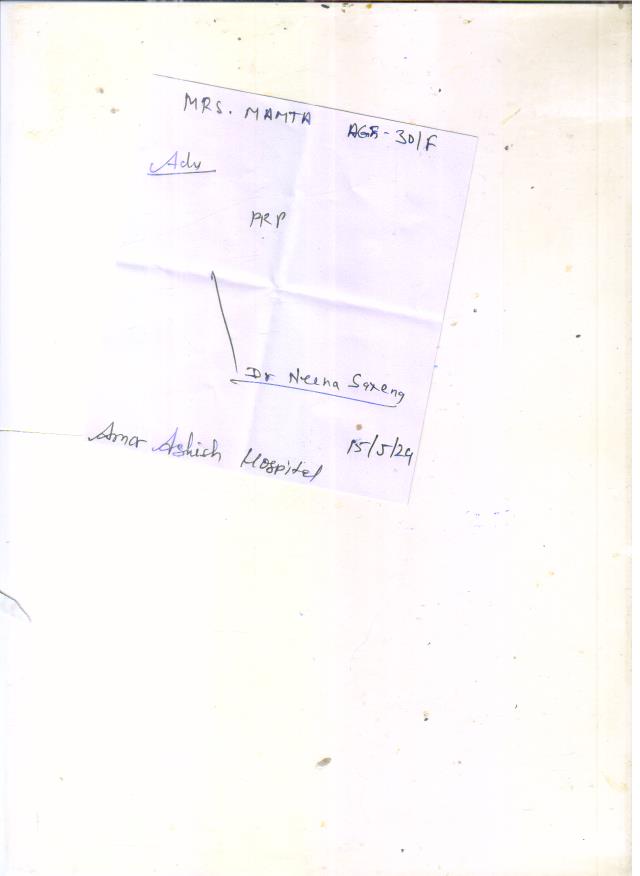 MRS. MAMTA AGE-30/F
Adv
PRP
Dr Neena Saxena
15/5/24
Amar Ashish Hospital